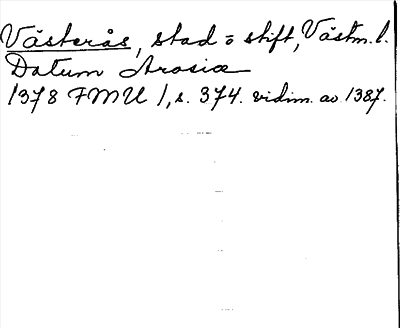 Västerås, stad o stift, Västm. l.
Datum Arosiæ
1378 FMU 1, s. 374. vidim. av 1387.